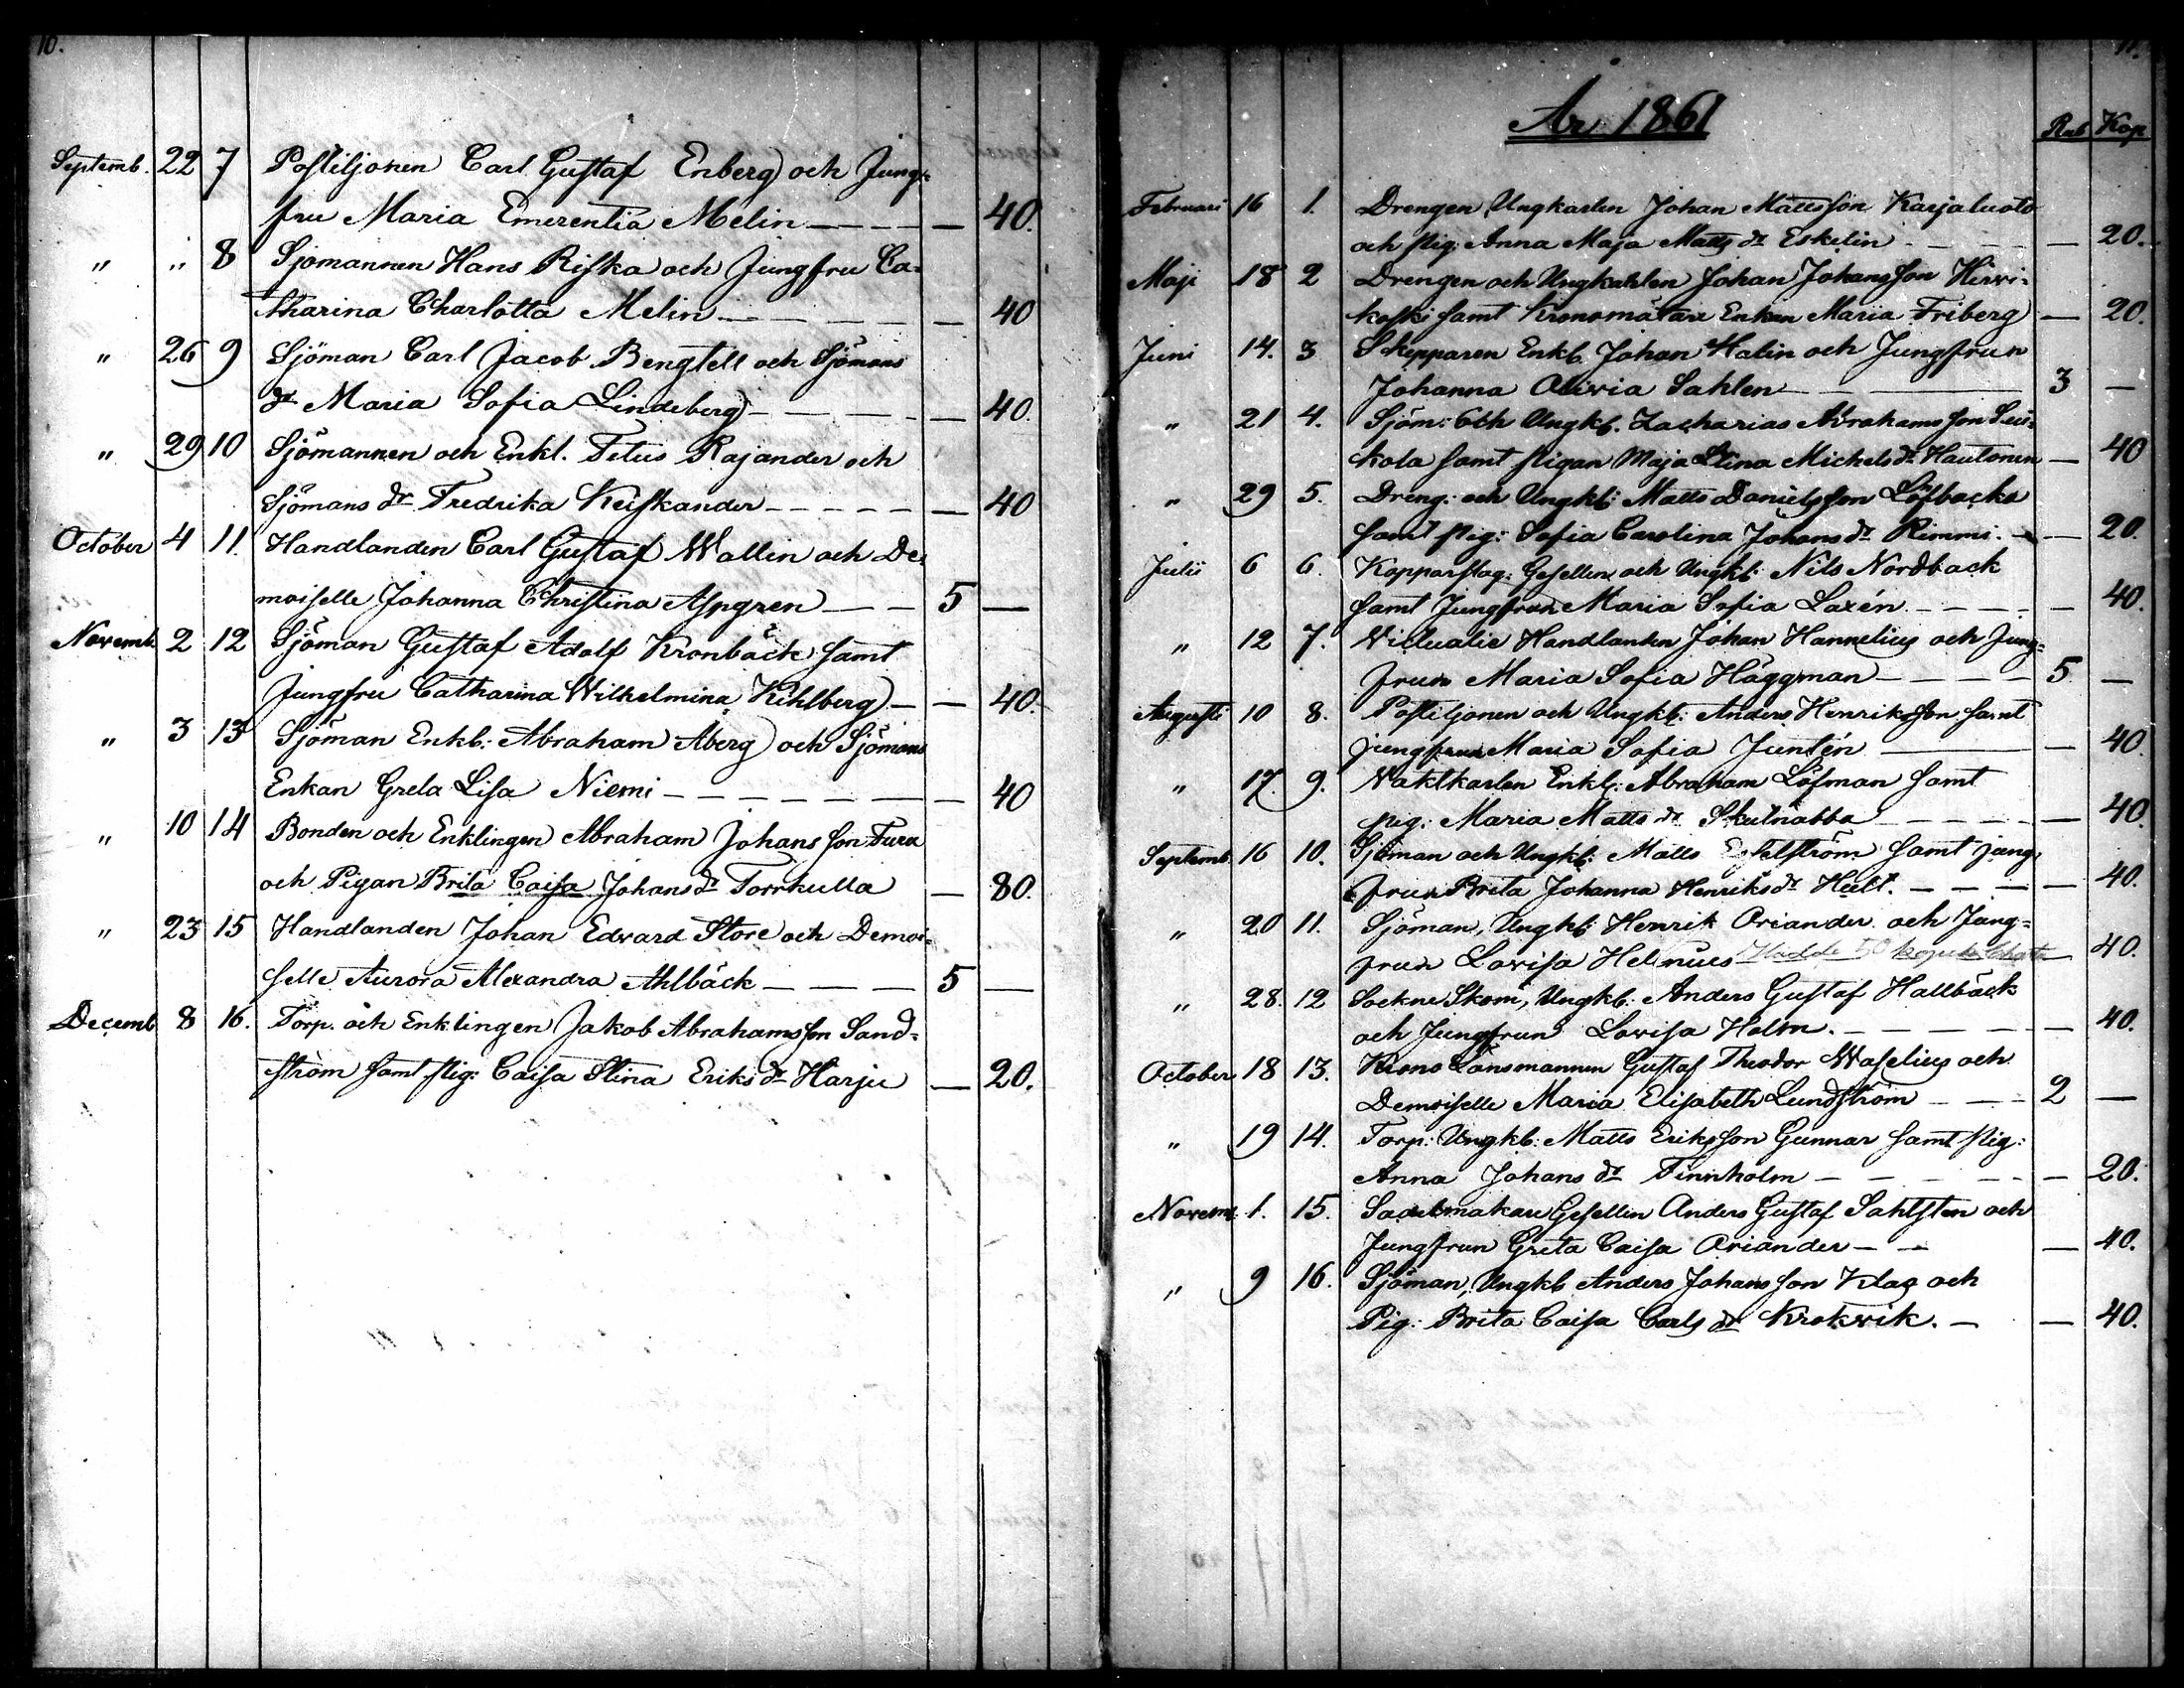 10.
Septemb. 22 7 Postiljonen Carl Gustaf Enberg och Jung-
fru Maria Emerentia Melin — 40.
" " 8 Sjömannen Hans Riska och Jungfru Ca-
tharina Charlotta Melin — 40
" 26 9 Sjöman Carl Jacob Bengtell och Sjömans
dr Maria Sofia Lindeberg — 40.
" 29 10 Sjömannen och Enkl. Fetus Rajander och
Sjömans dr Fredrika Keiskander — 40
October 4 11. Handlanden Carl Gustaf Wallin och De-
moiselle Johanna Christina Aspgren 5 —
Novemb. 2 12 Sjöman Gustaf Adolf Kronbäck samt
Jungfru Catharina Wilhelmina Kihlberg — 40.
" 3 13 Sjöman Enkl: Abraham Åberg och Sjömans
Enkan Greta Lisa Niemi — 40
" 10 14 Bonden och Enklingen Abraham Johansson Furu
och Pigan Brita Caisa Johansdr Torrkulla — 80.
" 23 15 Handlanden Johan Edvard Store och Demoi-
selle Aurora Alexandra Ahlbäck 5 —
Decemb 8 16. Torp. och Enklingen Jakob Abrahamsson Sand-
ström samt pig: Caisa Stina Eriksdr Harju — 20.
11.
År 1861
Rub Kop
Februari 16 1. Drengen Ungkarlen Johan Mattsson Karjaluoto
och pig: Anna Maja Matts dr Eskelin — 20.
Maji 18 2 Drengen och Ungkarlen Johan Johansson Hirvi-
koski samt Kronomätare Enkan Maria Friberg — 20.
Juni 14. 3 Skepparen Enkl. Johan Halin och Jungfrun
Johanna Olivia Sahlen 3 —
" 21 4. Sjöm: och Ungkl. Zacharias Abrahamsson
kola samt pigan Maja Stina Michelsdr Hautonen — 40
" 29 5. Dreng: och Ungkl: Matts Danielsson Löfbacka
samt pig: Sofia Carolina Johansdr Rimmi. — 20.
Julii 6 6. Kopparslag: Gesellen och Ungkl: Nils Nordback
samt Jungfrun Maria Sofia Laxén — 40.
" 12 7. Victualie Handlanden Johan Hannelius och Jung-
frun Maria Sofia Häggman 5 —
Augusti 10 8. Postiljonen och Ungkl: Anders Henriksson samt
jungfrun Maria Sofia Juntén — 40.
" 17. 9. Vaktkarlen Enkl: Abraham Löfman samt
pig: Maria Matts dr Skutnabba — 40.
Septemb. 16 10. Sjöman och Ungkl: Matts Estelström samt jung-
frun Brita Johanna Henriksdr Hult. — 40.
" 20 11. Sjöman, Ungkl: Henrik Oriander och Jung-
frun Lovisa Helnius — 40.
" 28. 12 Sockne Skom, Ungkl: Anders Gustaf Hallbäck
och Jungfrun Lovisa Holm. — 40.
October 18 13. Krono Länsmannen Gustaf Theodor Waselius och
Demoiselle Maria Elisabeth Lundström 2 —
" 19 14. Torp: Ungkl: Matts Eriksson Gunnar samt pig:
Anna Johans dr Finnholm — 20.
Novemb. 1. 15. Sadelmakare Gesellen Anders Gustaf Sahlsten och
Jungfrun Greta Caisa Oriander — 40.
" 9 16. Sjöman, Ungkl Anders Johansson Klag och
Pig: Brita Caisa Carls dr Krokvik. — 40.